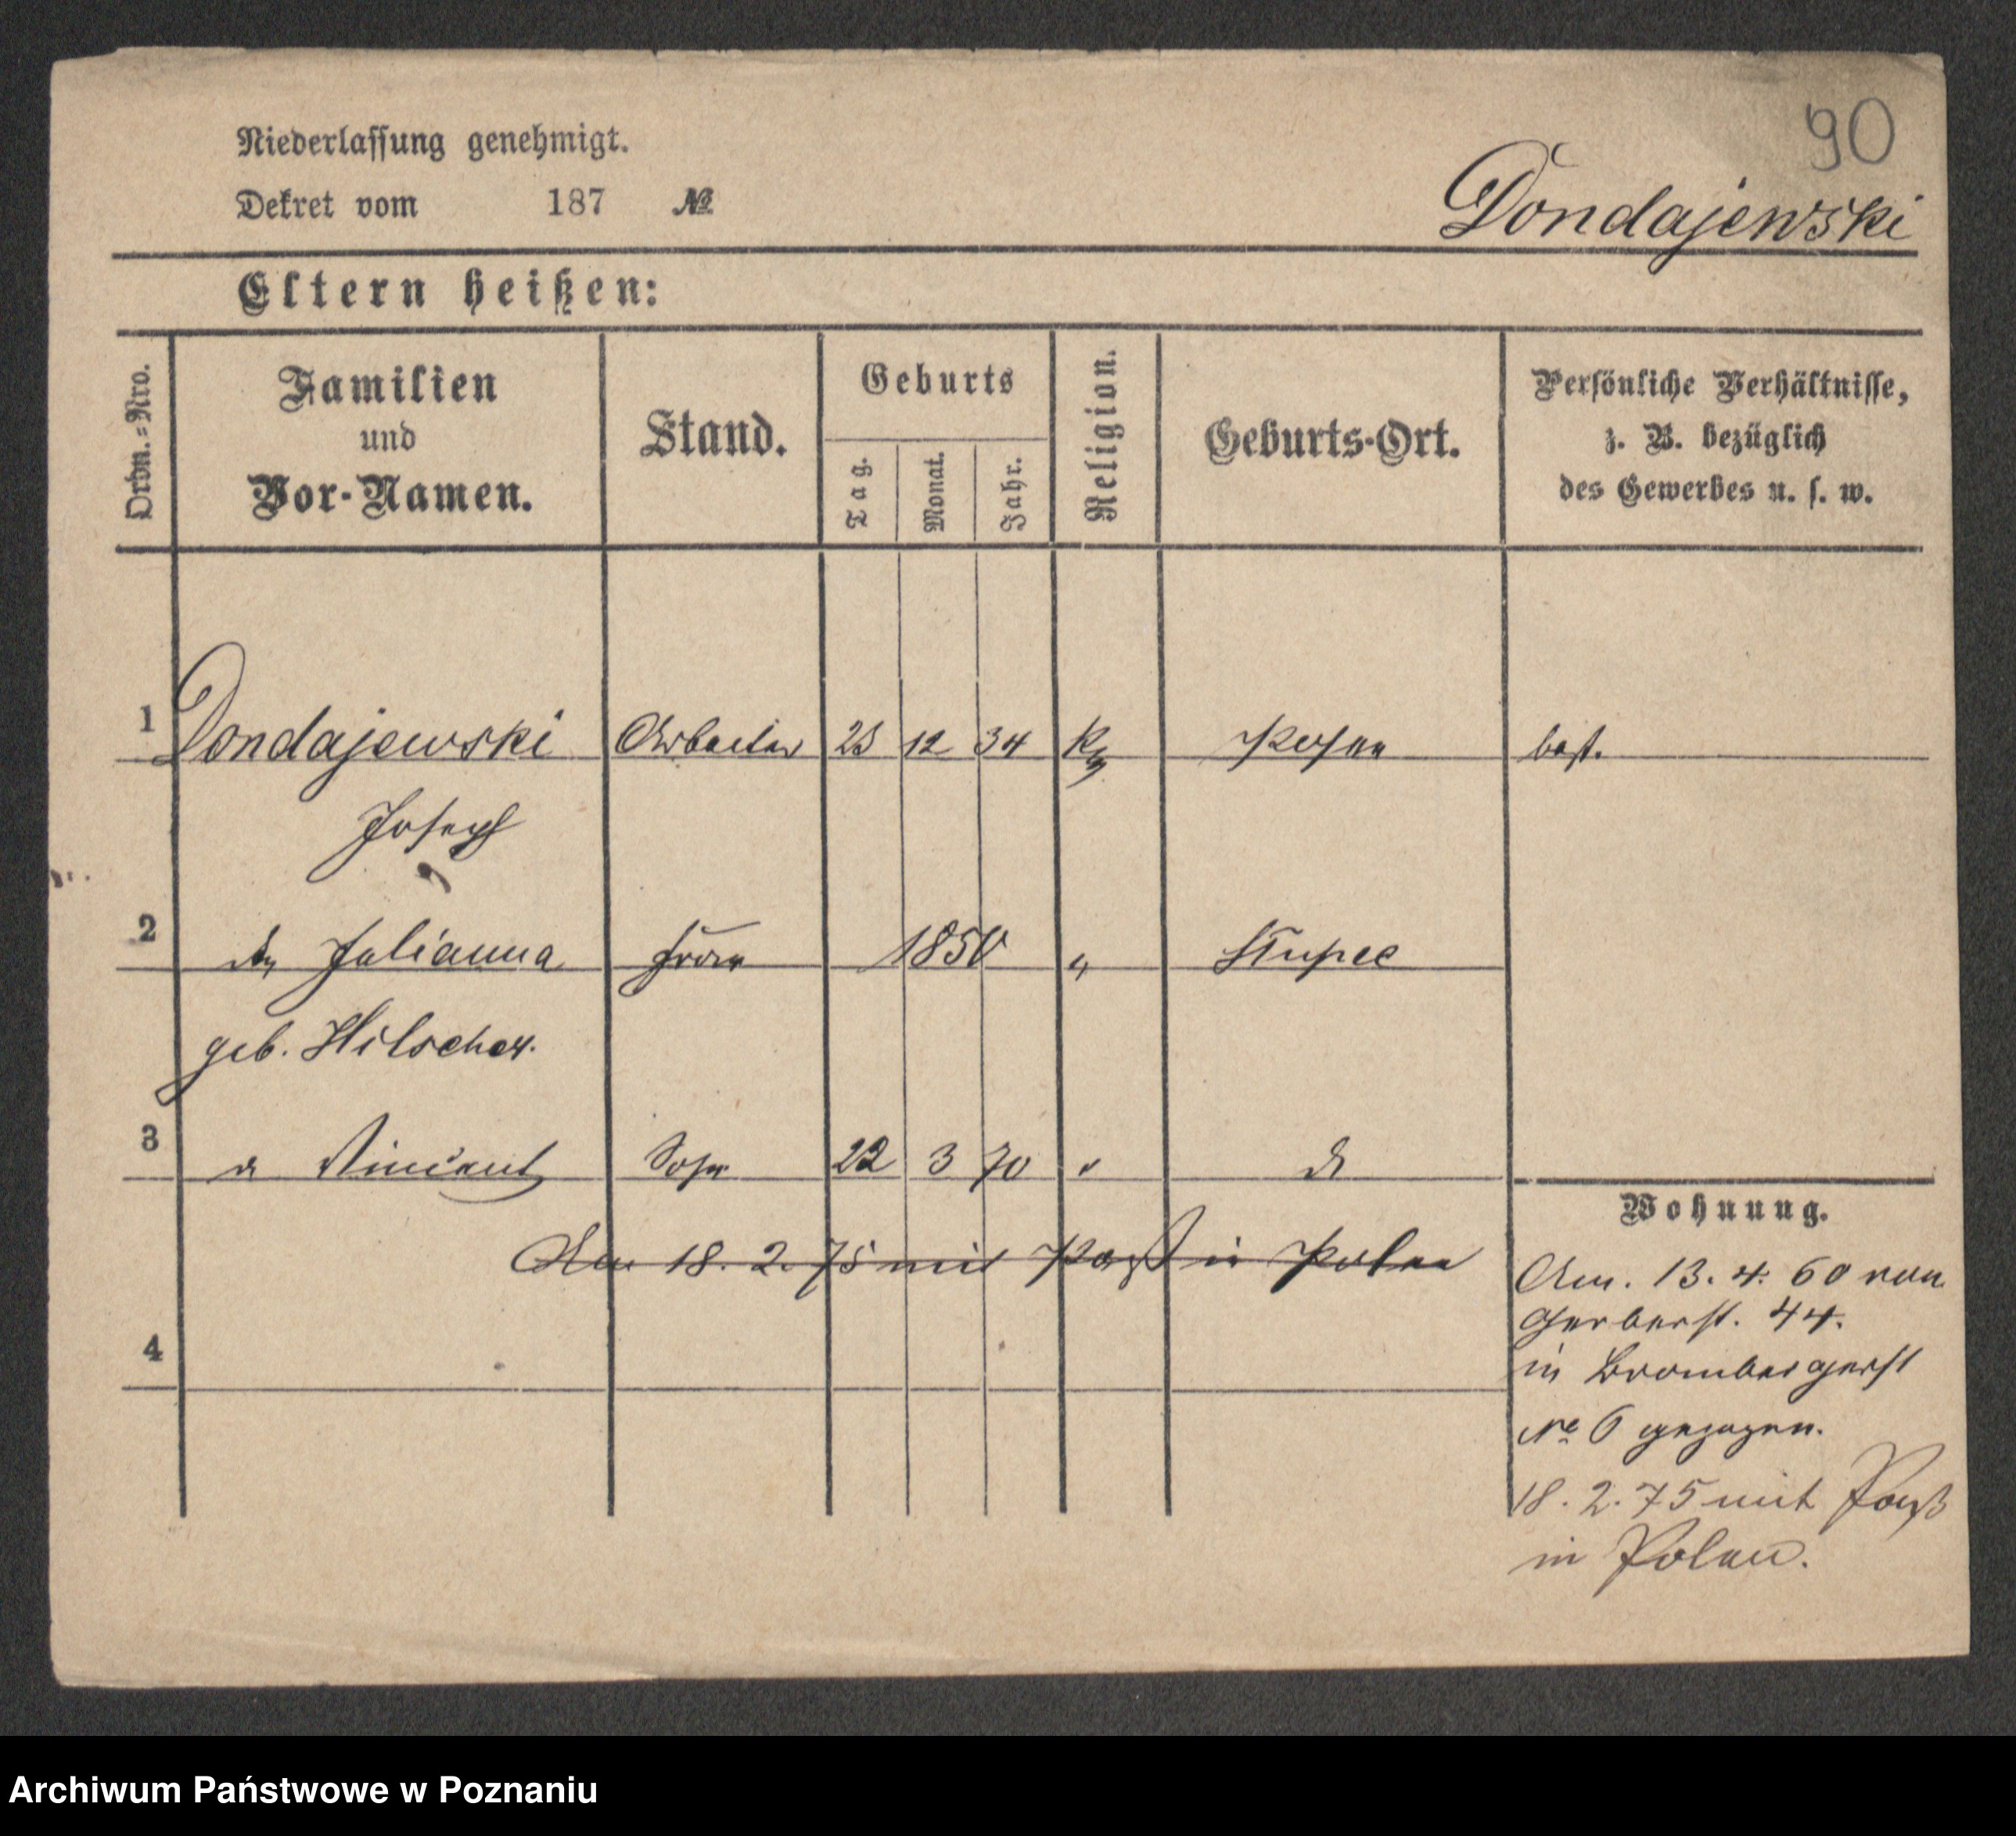 90
Niederlassung genehmigt.
Dekret vom 187 №
Dondajewski
Eltern heißen:
Ordn.=Nro.
Familien
und
Vor-Namen.
Stand.
Geburts
Tag.
Monat.
Jahr.
Religion.
Geburts-Ort.
Persönliche Verhältnisse,
z. B. bezüglich
des Gewerbes u. s. w.
1 Dondajewski Arbeiter 25 12 34 Posen best.
Joseph
2 Julianna Frau 1850 " Slupce
geb. Hilscher.
3 Vincent Sohn 22 3 70 "
Am 18. 2. 75 mit Paß in Polen
4
Wohnung.
Am. 13. 4. 60 von
Gerberst. 44.
in Brombergerst
№ 6 gezogen.
18. 2. 75 mit Paß
in Polen.
Archiwum Państwowe w Poznaniu